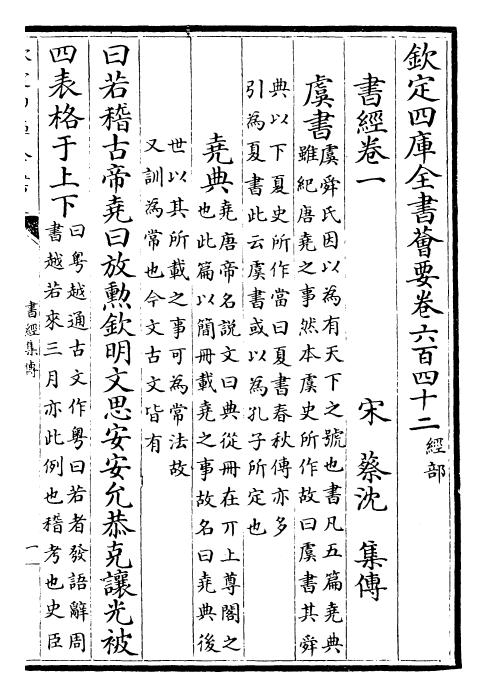 欽定四庫全書薈要卷六百四十二 經部
書經卷一
宋 蔡沈 集傳
虞書
虞舜氏因以為有天下之號也書凡五篇堯典
雖紀唐堯之事然本虞史所作故曰虞書其舜
典以下夏史所作當曰夏書春秋傳亦多
引為夏書此云虞書或以為孔子所定也
堯典
堯唐帝名說文曰典從冊在丌上尊閣之
也此篇以簡冊載堯之事故名曰堯典後
世以其所載之事可為常法故
又訓為常也今文古文皆有
曰若稽古帝堯曰放勲欽明文思安安允恭克讓光被
四表格于上下
曰粤越通古文作粤曰若者發語辭周
書越若來三月亦此例也稽考也史臣
書經集傳
一